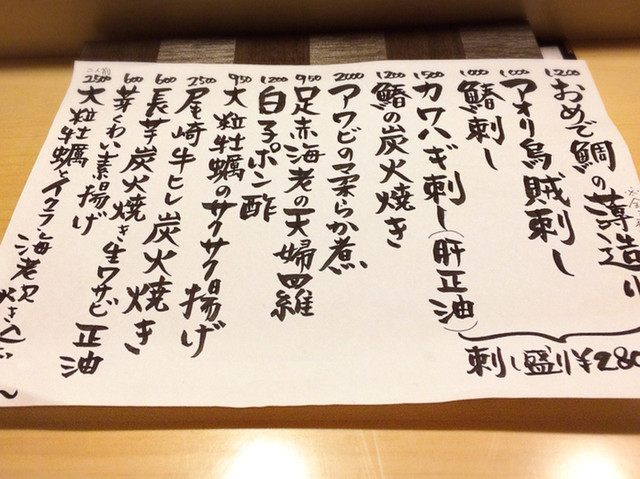 1200 おめで鯛の薄造り
1000 アオリ烏賊刺し
1000 鰆刺し
1500 カワハギ刺し(肝正油)
刺し盛り¥280
1200 鰆の炭火焼き
2000 アワビの柔らか煮
950 足赤海老の天婦羅
1200 白子ポン酢
950 大粒牡蠣のサクサク揚げ
2500 尾崎牛ヒレ炭火焼き
600 長芋炭火焼き 生ワサビ正油
600 芽くわい素揚げ
2500 大粒牡蠣とイクラ、海老の炊き込ご〜